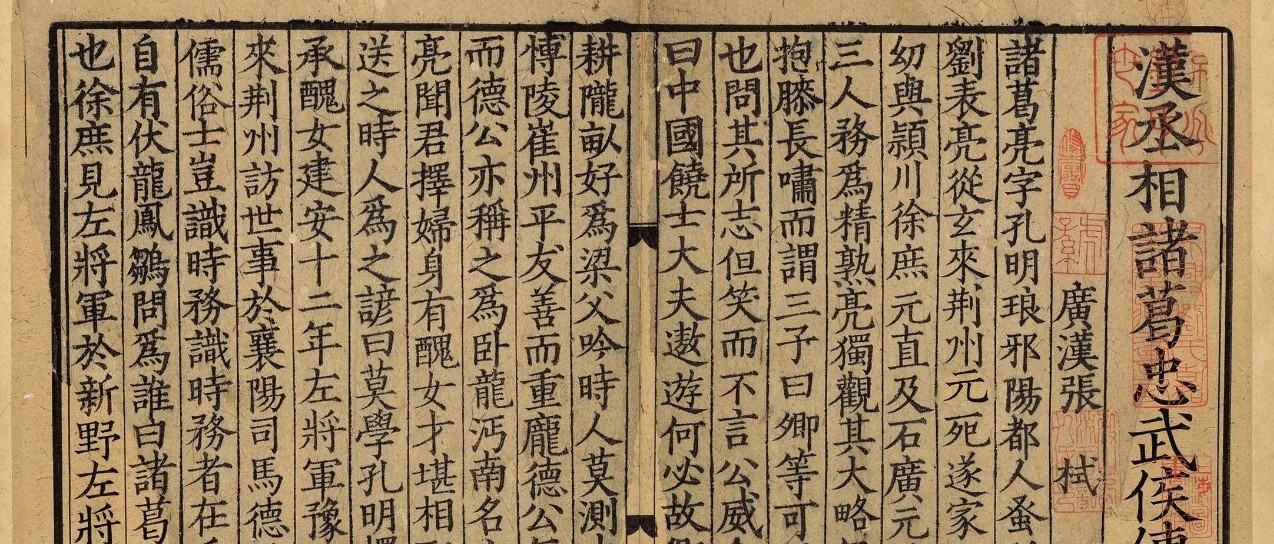 漢丞相諸葛忠武侯傳
廣漢張 栻
諸葛亮字孔明琅邪陽都人蚤
劉表亮從玄來荆州元死遂家
幼與潁川徐庶元直及石廣元
三人務爲精熟亮獨觀其大略
抱膝長嘯而謂三子曰卿等可
也問其所志但笑而不言公威
曰中國饒士大夫遨遊何必故
耕隴畝好爲梁父吟時人莫測
愽陵崔州平友善而重龐德公
而德公亦稱之爲卧龍沔南名
亮聞君擇婦身有醜女才堪相
送之時人爲之諺曰莫學孔明擇
承醜女建安十二年左將軍豫
來荆州訪世事於襄陽司馬德
儒俗士豈識時務識時務者在
自有伏龍鳳鶵問爲誰曰諸葛
也徐庶見左將軍於新野左將